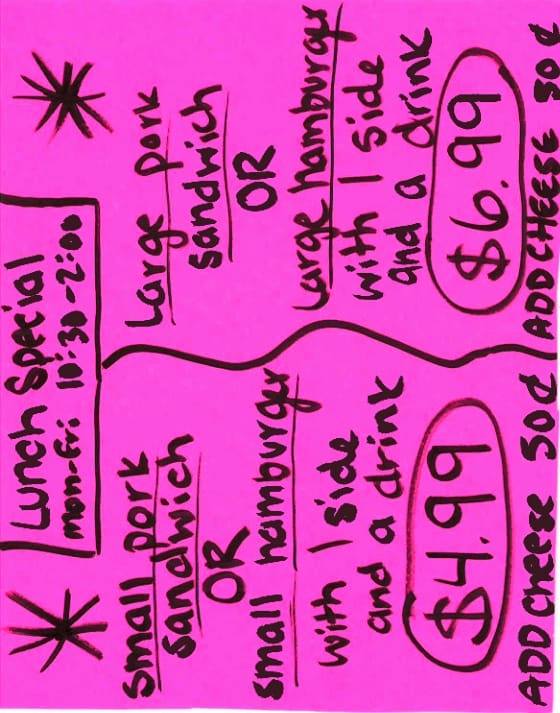 Lunch Special
mon-fri 10:30-2:00
small pork
sandwich
OR
small hamburger
with 1 side
and a drink
$4.99
ADD cheese 50¢
Large pork
sandwich
OR
Large hamburger
with 1 side
and a drink
$6.99
ADD CHEESE 50¢